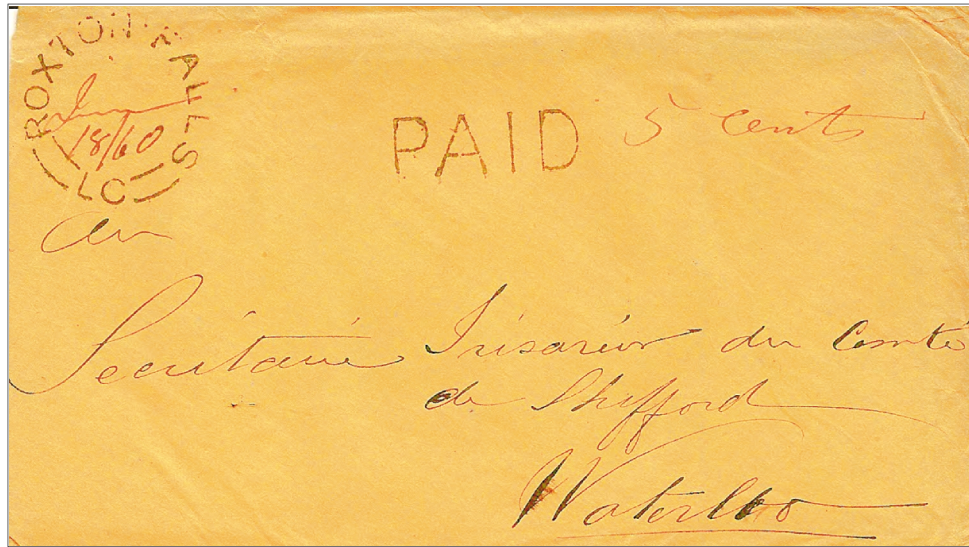 ROXTON FALLS
LC
Jun
18/60
PAID 5 cents
Au
Secrétaire Trésorier du Comté
de Shefford
Waterloo